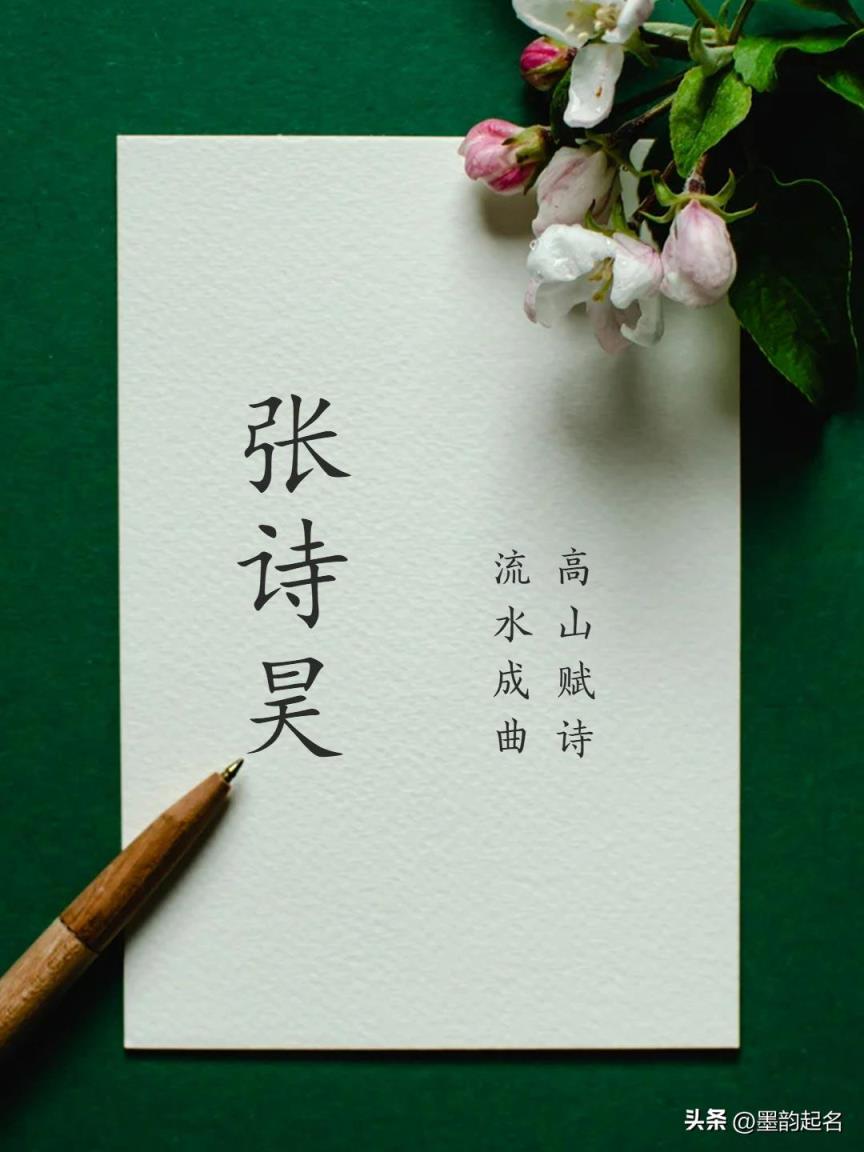 张诗昊
高山赋诗
流水成曲
头条 @墨韵起名